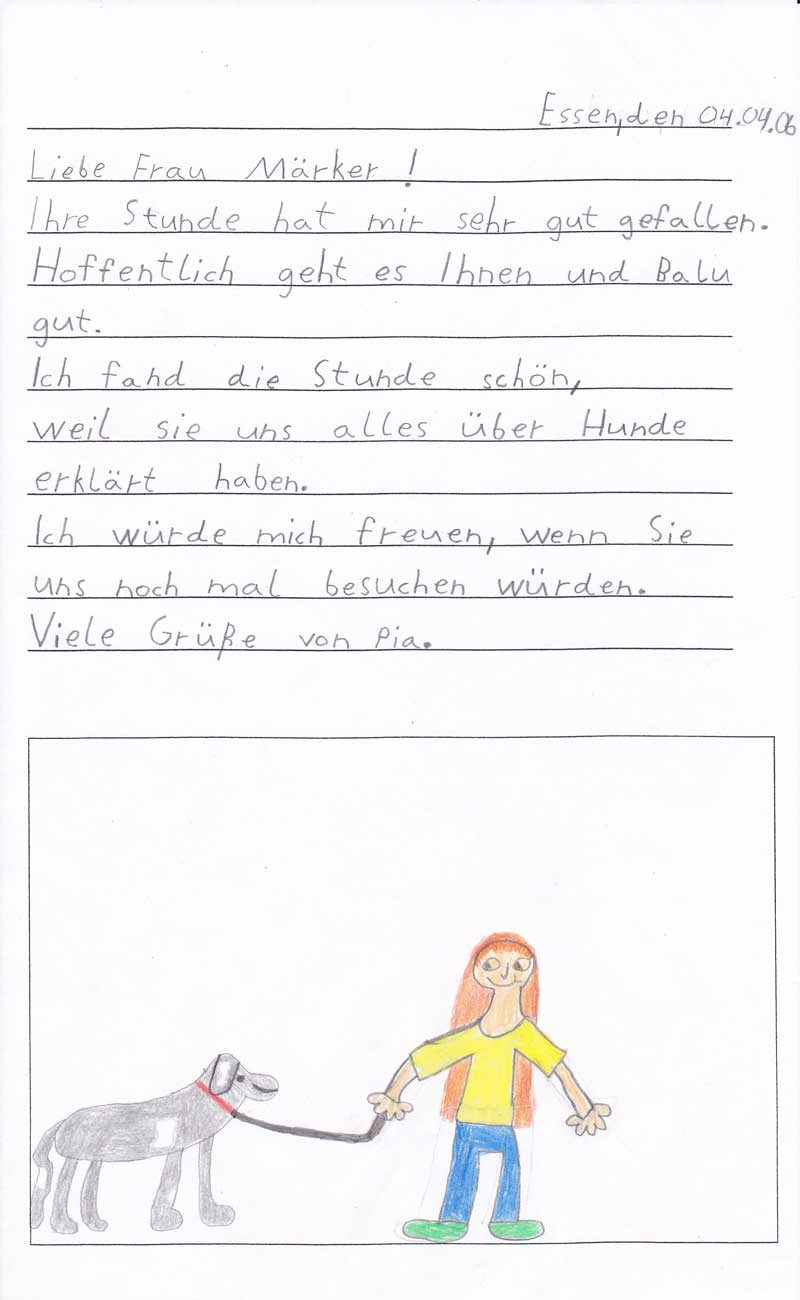 Essen, den 04.04.06
Liebe Frau Märker!
Ihre Stunde hat mir sehr gut gefallen.
Hoffentlich geht es Ihnen und Balu
gut.
Ich fand die Stunde schön,
weil sie uns alles über Hunde
erklärt haben.
Ich würde mich freuen, wenn Sie
uns noch mal besuchen würden.
Viele Grüße von Pia.